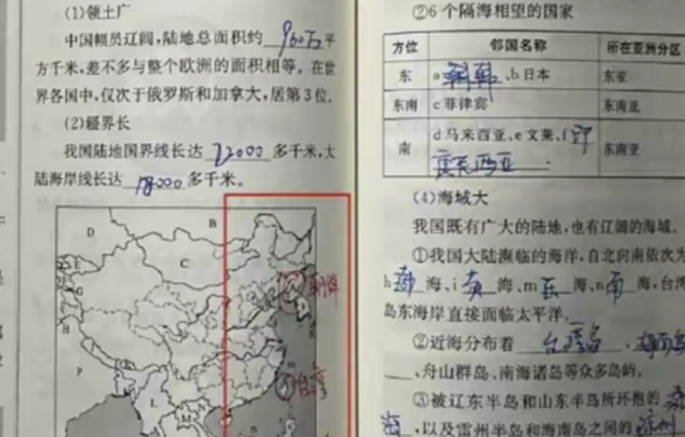 (1)领土广
中国幅员辽阔,陆地总面积约 960万 平
方千米,差不多与整个欧洲的面积相等。在世
界各国中,仅次于俄罗斯和加拿大,居第3位。
(2)疆界长
我国陆地国界线长达 22000 多千米,大
陆海岸线长达 18000 多千米。
D
B
C
E
G
H
P
L
M
台湾
②6个隔海相望的国家
方位 邻国名称 所在亚洲分区
东 a 韩、b日本 东亚
东南 c菲律宾 东南亚
南 d马来西亚、e文莱、f 印
度尼西亚 东南亚
(4)海域大
我国既有广大的陆地,也有辽阔的海域。
①我国大陆濒临的海洋,自北向南依次为
h 渤 海、i 黄 海、m 东 海、n 南 海,台湾
岛东海岸直接面临太平洋。
②近海分布着 台湾岛 、
、舟山群岛、南海诸岛等众多岛屿。
③被辽东半岛和山东半岛所环抱的 渤
海 ,以及雷州半岛和海南岛之间的 琼州